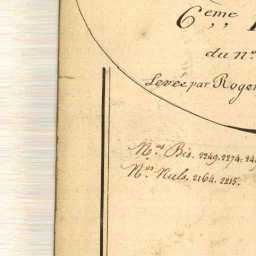 6ème
du n°
Levée par Roger
N.os Bis. 2249. 2274.
N.os Nuls. 2164. 2215.